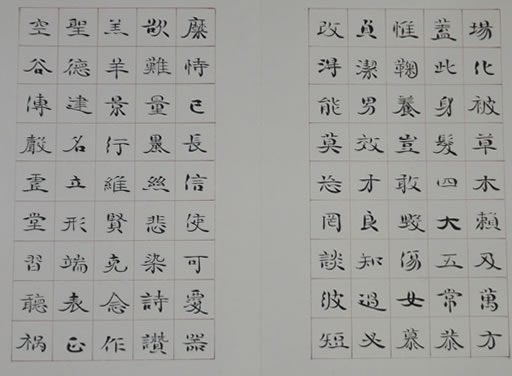 場化被草木賴及萬方
蓋此身髮四大五常恭
惟鞠養豈敢毀傷女慕
貞潔男效才良知過必
改得能莫忘罔談彼短
靡恃己長信使可覆器
欲難量墨絲悲染詩讚
羔羊景行維賢克念作
聖德建名立形端表正
空谷傳聲虛堂習聽禍